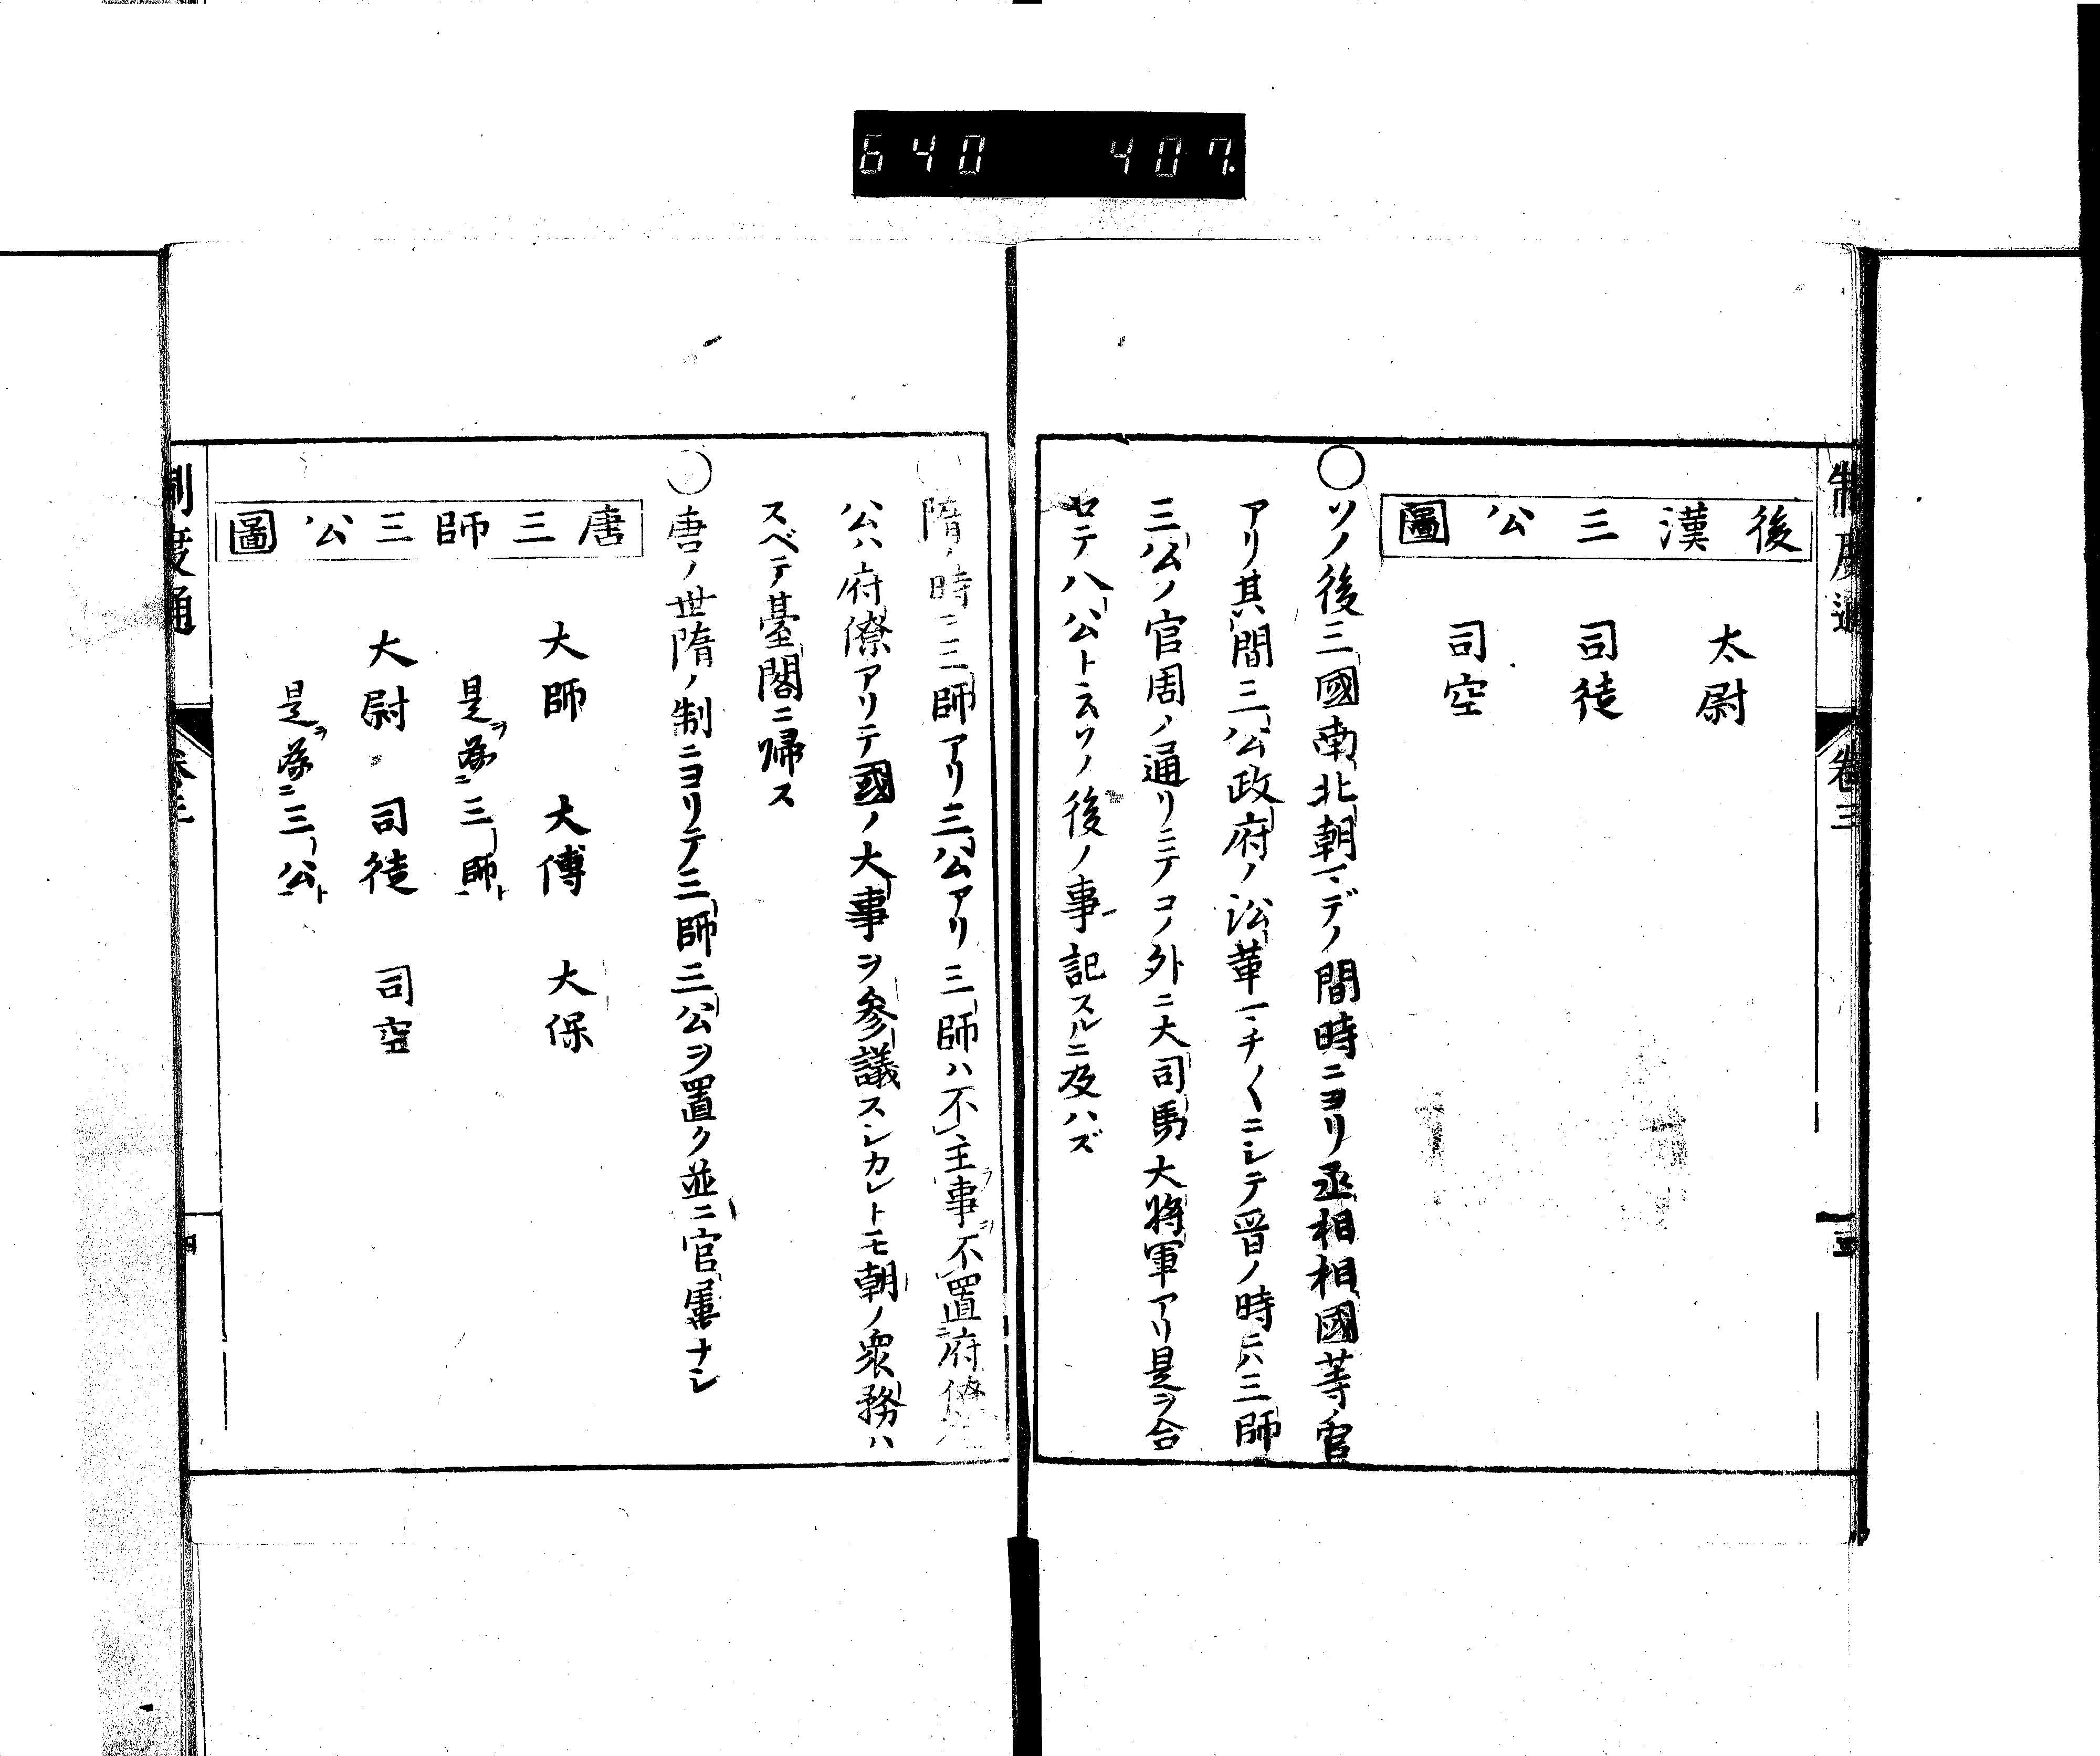 640 407.
制度通 卷三
後漢三公圖
太尉
司徒
司空
〇ソノ後三國南北朝マデノ間時ニヨリ丞相相國等ノ官
アリ其間三公政府ノ沿革マチ〱ニシテ晉ノ時ニハ三師
三公ノ官周ノ通リニテコノ外ニ大司馬大將軍アリ是ヲ合
セテ八公ト云ソノ後ノ事記スルニ及ハズ
〇隋ノ時ニ三師アリ三公アリ三師ハ不主事ヲ不置府僚
公ハ府僚アリテ國ノ大事ヲ参議スシカレトモ朝ノ衆務ハ
スベテ臺閣ニ帰ス
〇唐ノ世隋ノ制ニヨリテ三師三公ヲ置ク並ニ官屬ナシ
唐三師三公圖
大師 大傅 大保
是ヲ爲ニ三師ト
大尉 司徒 司空
是ヲ爲ニ三公ト
制度通